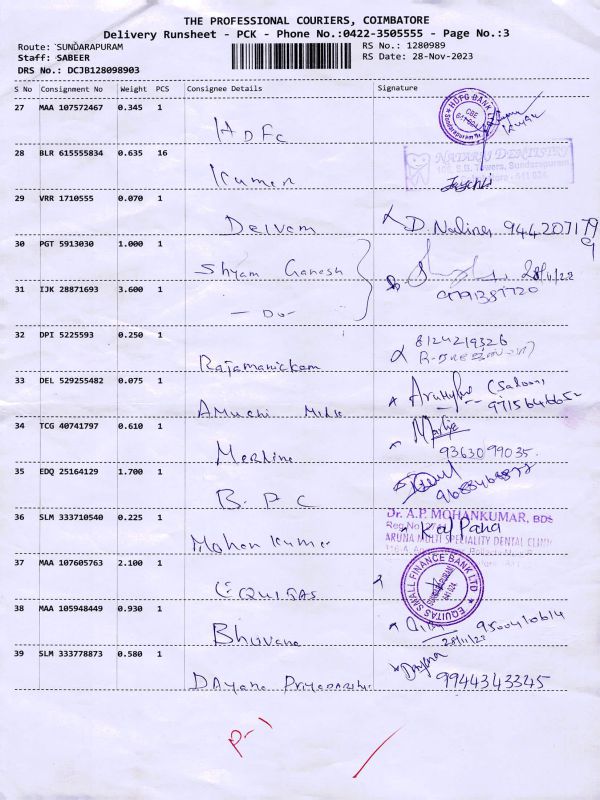 THE PROFESSIONAL COURIERS, COIMBATORE
Delivery Runsheet - PCK - Phone No.:0422-3505555 - Page No.:3
Route: SUNDARAPURAM RS No.: 1280989
Staff: SABEER RS Date: 28-Nov-2023
DRS No.: DCJB128098903
S No Consignment No Weight PCS Consignee Details Signature
27 MAA 107572467 0.345 1
HDFC HDFC BANK LTD
28 BLR 615555834 0.635 16
Kumar NATARAJ DENTISTRY
29 VRR 1710555 0.070 1
Deivam D. Nalina 9442071799
30 PGT 5913030 1.000 1
Shyam Ganesh
31 IJK 28871693 3.600 1
- Do - 9791387720
32 DPI 5225593 0.250 1
Rajamanickam 8124219326
33 DEL 529255482 0.075 1
Amuthi Milk (Saloon) 9715646652
34 TCG 40741797 0.610 1
Merlina 9363099035
35 EDQ 25164129 1.700 1
B.P.C
36 SLM 333710540 0.225 1
Mohan Kumar Dr. A.P. MOHANKUMAR, BDS
Kalpana
ARUNA MULTI SPECIALITY DENTAL CLINIC
37 MAA 107605763 2.100 1
EQUITAS EQUITAS SMALL FINANCE BANK LTD
38 MAA 105948449 0.930 1
Bhuvana
39 SLM 333778873 0.580 1
Dayana 9944343345
P-1